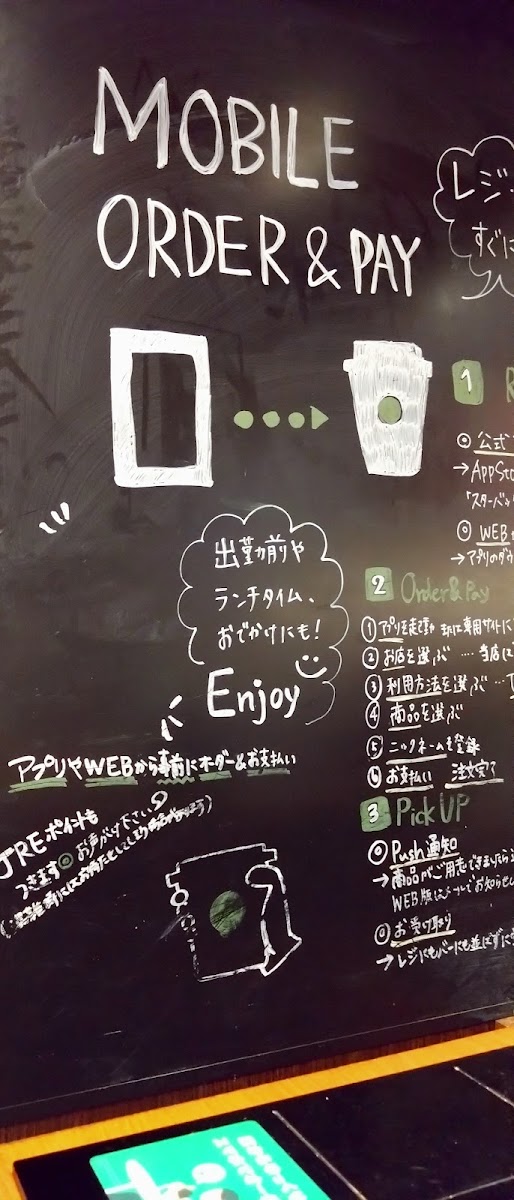 MOBILE
ORDER & PAY
レジ
すぐに
出勤前や
ランチタイム、
おでかけにも!
Enjoy
アプリやWEBから事前にオーダー&お支払い
JREポイントも
つきます お声がけ下さい
1 R
公式
→AppSto
「スターバッ
WEB
→アプリのダウ
2 Order&Pay
① アプリを起動 または専用サイトに
② お店を選ぶ ‥‥ 当店は
③ 利用方法を選ぶ ‥
④ 商品を選ぶ
⑤ ニックネームを登録
⑥ お支払い 注文完了
3 Pick UP
Push通知
→商品がご用意できましたら
WEB版はメールでお知らせし
お受け取り
→レジにもバーにも並ばずに